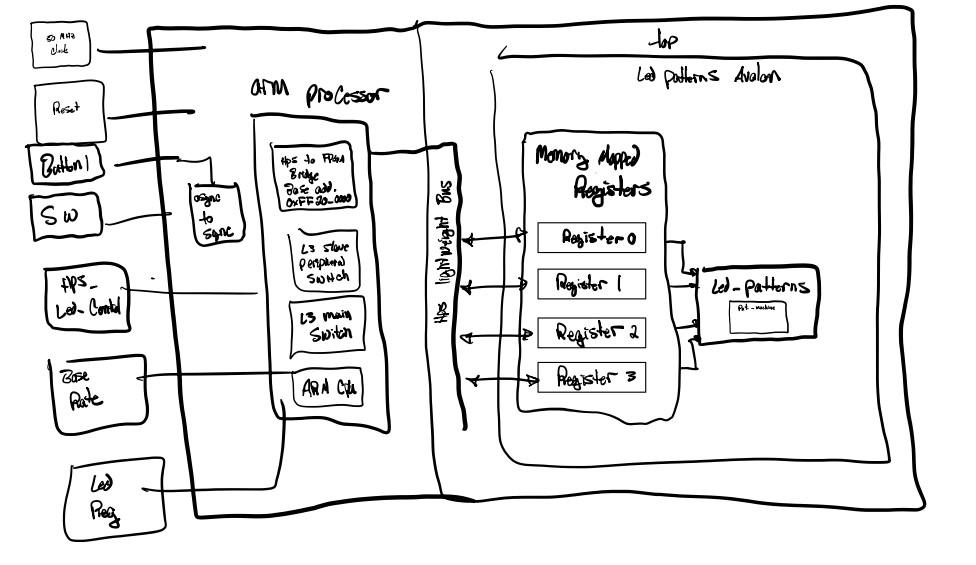 50 MHz
Clock
Reset
Button 1
SW
Hps_
Led_Control
Base
Rate
Led
Reg
async
to
sync
ARM Processor
Hps to FPGA
Bridge
Base add.
0xFF20_0000
L3 slave
Peripheral
Switch
L3 main
Switch
ARM Cpu
Hps lightweight Bus
top
Led patterns Avalon
Memory Mapped
Registers
Register 0
Register 1
Register 2
Register 3
Led_patterns